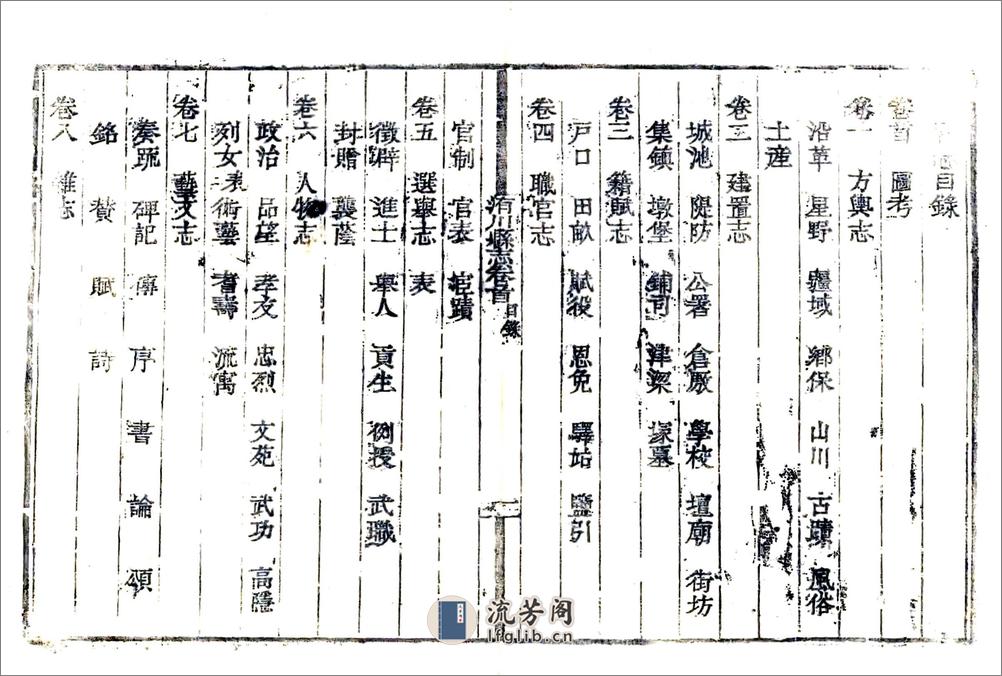 目錄
卷首 圖考
卷一 方輿志
沿革 星野 疆域 鄉保 山川 古蹟 風俗
土産
卷二 建置志
城池 隄防 公署 倉厫 學校 壇廟 街坊
集鎮 墩堡 鋪司 津梁 塚墓
卷三 籍賦志
戸口 田畝 賦役 恩免 驛站 鹽引
卷四 職官志
洧川縣志卷首 目錄
官制 官表 宦蹟
卷五 選舉志 表
徵辟 進士 舉人 貢生 例授 武職
封贈 襲蔭
卷六 人物志
政治 品望 孝友 忠烈 文苑 武功 高隱
列女表 術藝 耆壽 流寓
卷七 藝文志
奏疏 碑記 傳 序 書 論 頌
銘 賛 賦 詩
卷八 雜志
流芳阁
lfglib.cn